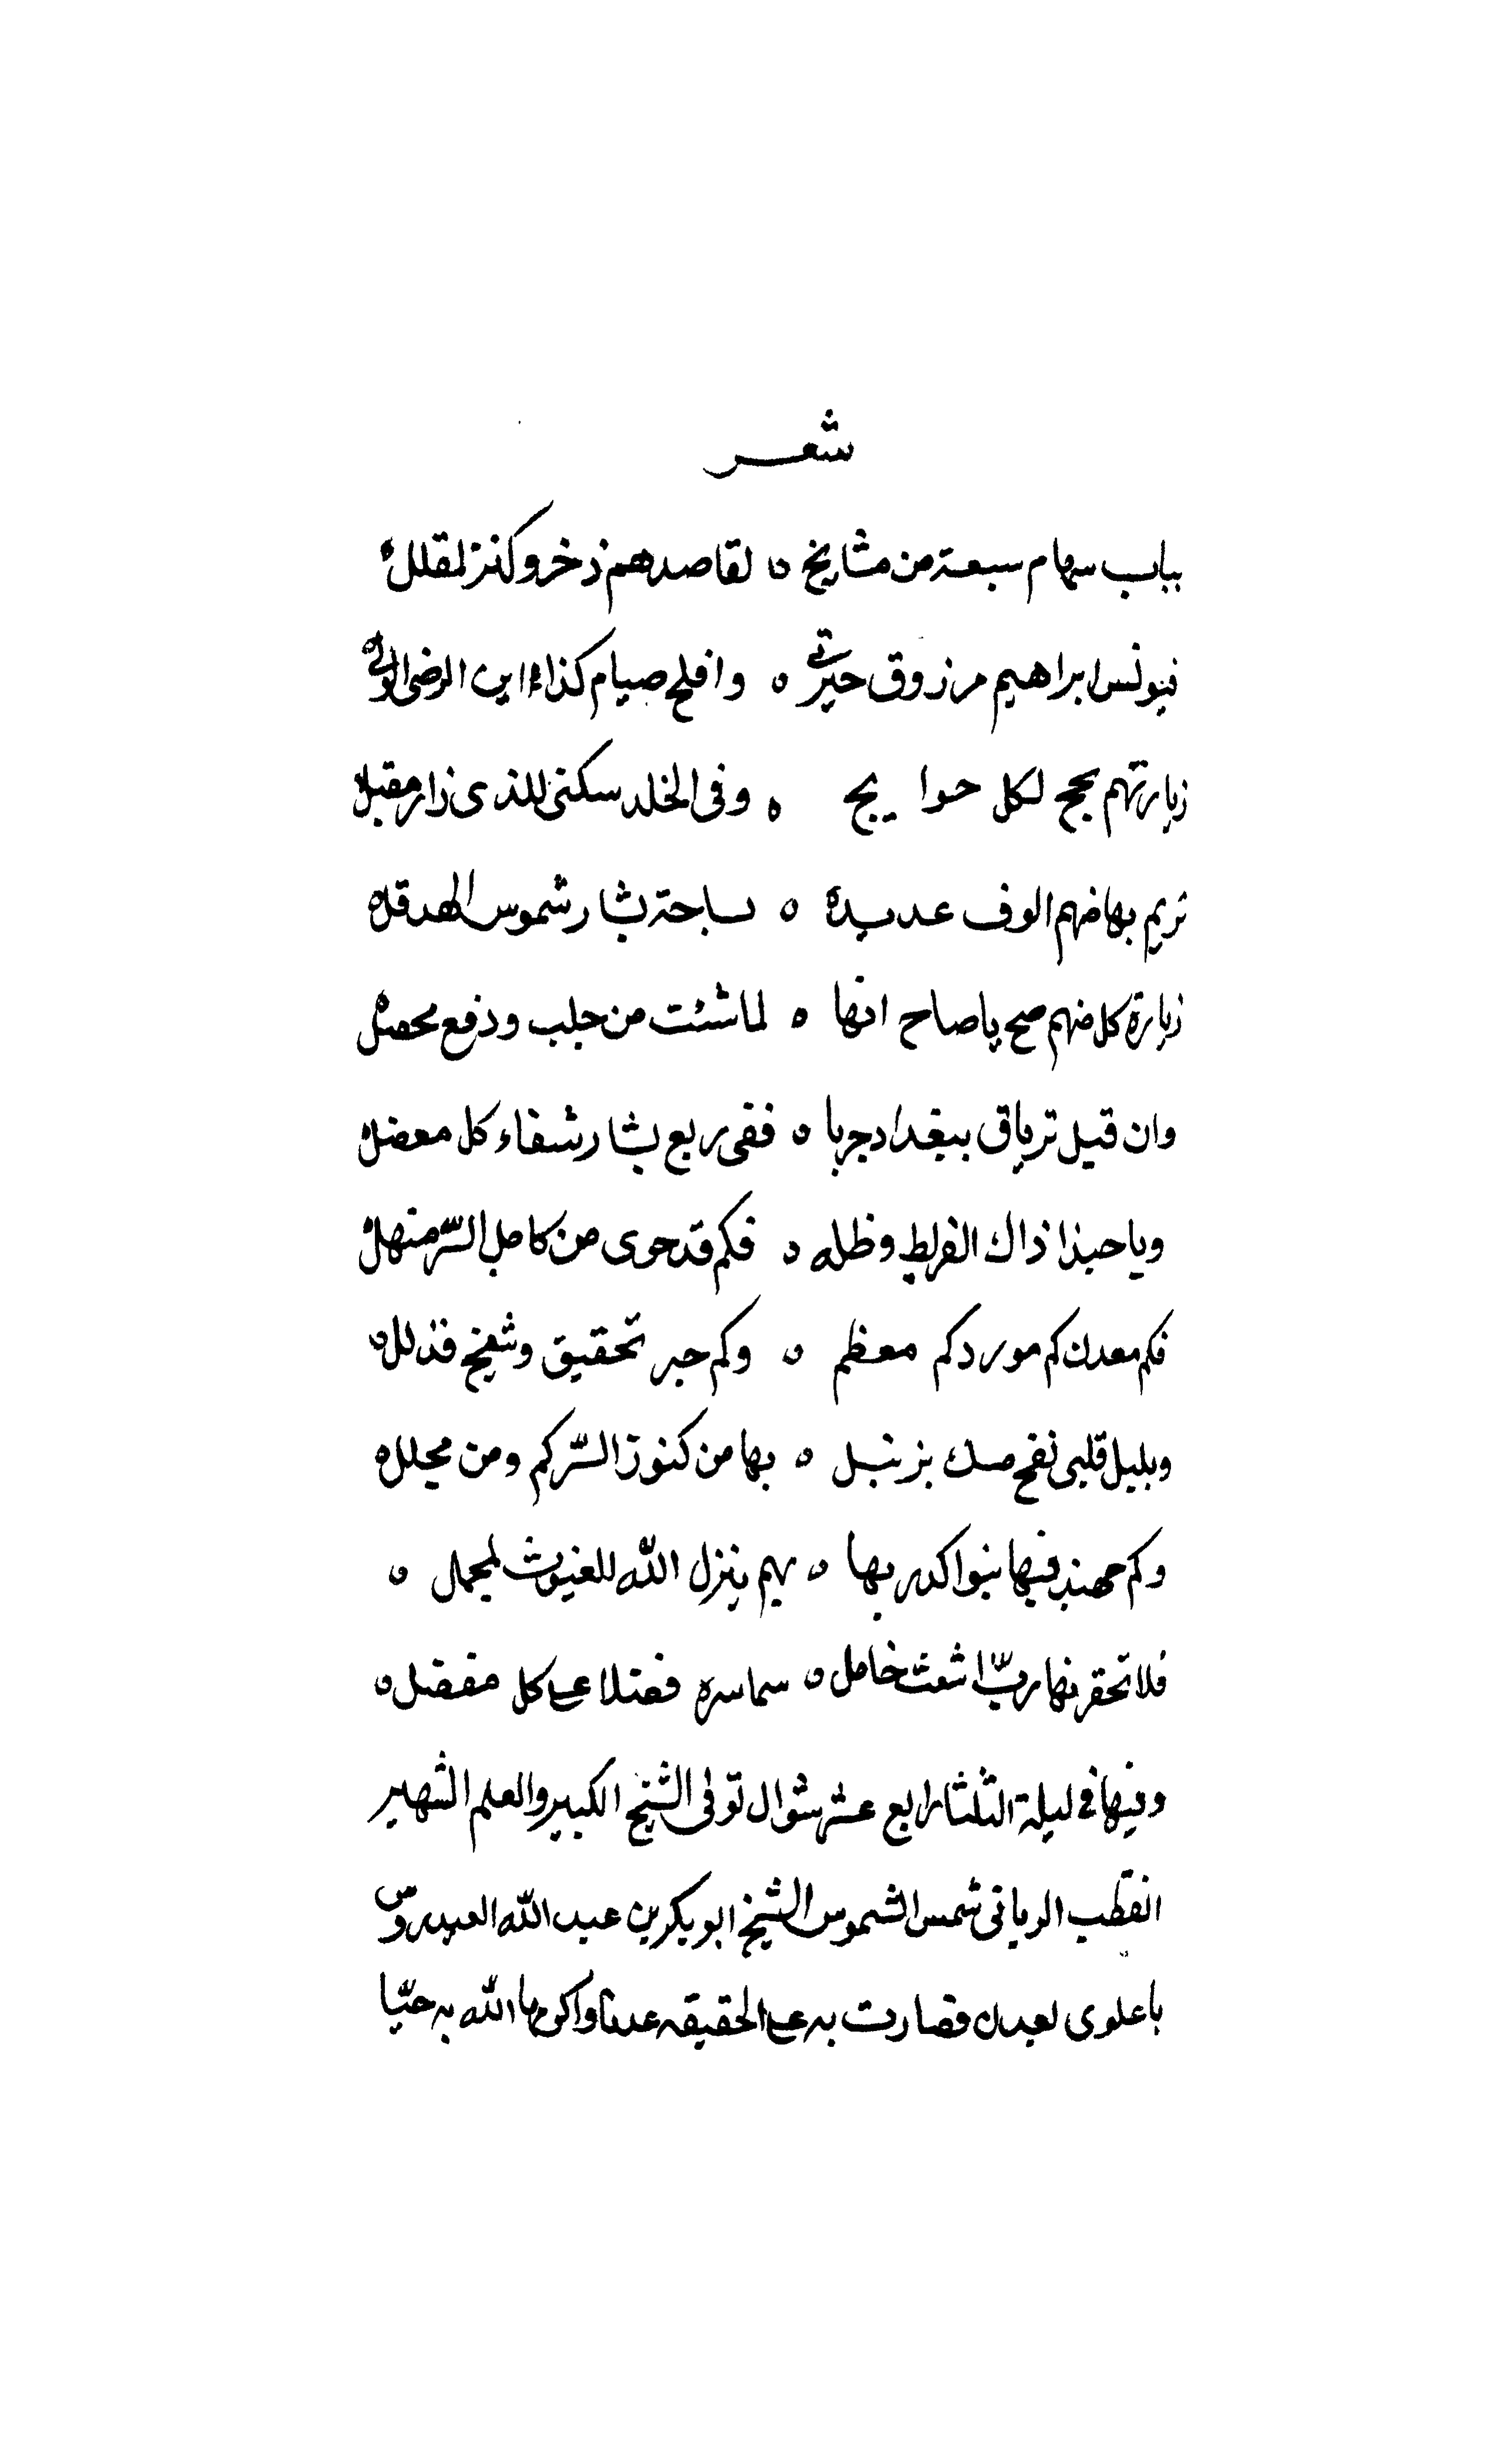 شعر
بباب سهام سبعة من مشايخ ه لقاصدهم ذخر وكنز لمقلل ه
فيونس ابراهيم مرزوق جبرتي ه وافلح صيام كذا ابن الرضى الولي ه
زيارتهم نجح لكل حوايج ه وفى الخلد سكنى للذى زار مقبل ه
تريم بها منهم الوف عديدة ه بساحة بشار شموس الهد قل ه
زيارة كل منهم صح ياصاح انها ه لما شئت من جلب ودفع محصل ه
وان قيل ترياق ببغداد جربا ه ففى ربع بشار شفاء كل معضل ه
ويا حبذا ذاك الفريط وظله ه فكم قد حوى من كامل السّر منهل ه
فكم معدن كم مورد كم معظم ه وكم حبر تحقيق وشيخ فذلل ه
وبلبل قلبى نفح مسك بزنبل ه بها من كنوز السّر كم ومن محلل ه
وكم فيها بها ه بهم ينزل الله الغيوث لمجمل ه
فلا تحقرنها ربّ اشعث خامل ه سما سره فضلا على كل مفضل ه
وفيها فى ليلة الثلثا رابع عشر شوال توفى الشيخ الكبير والعلم الشهير
القطب الربانى شمس الشموس الشيخ ابو بكر بن عبد الله العيدروس
باعلوى بعدن فصارت به على الحقيقه عدنا واكرمها الله به حيّا